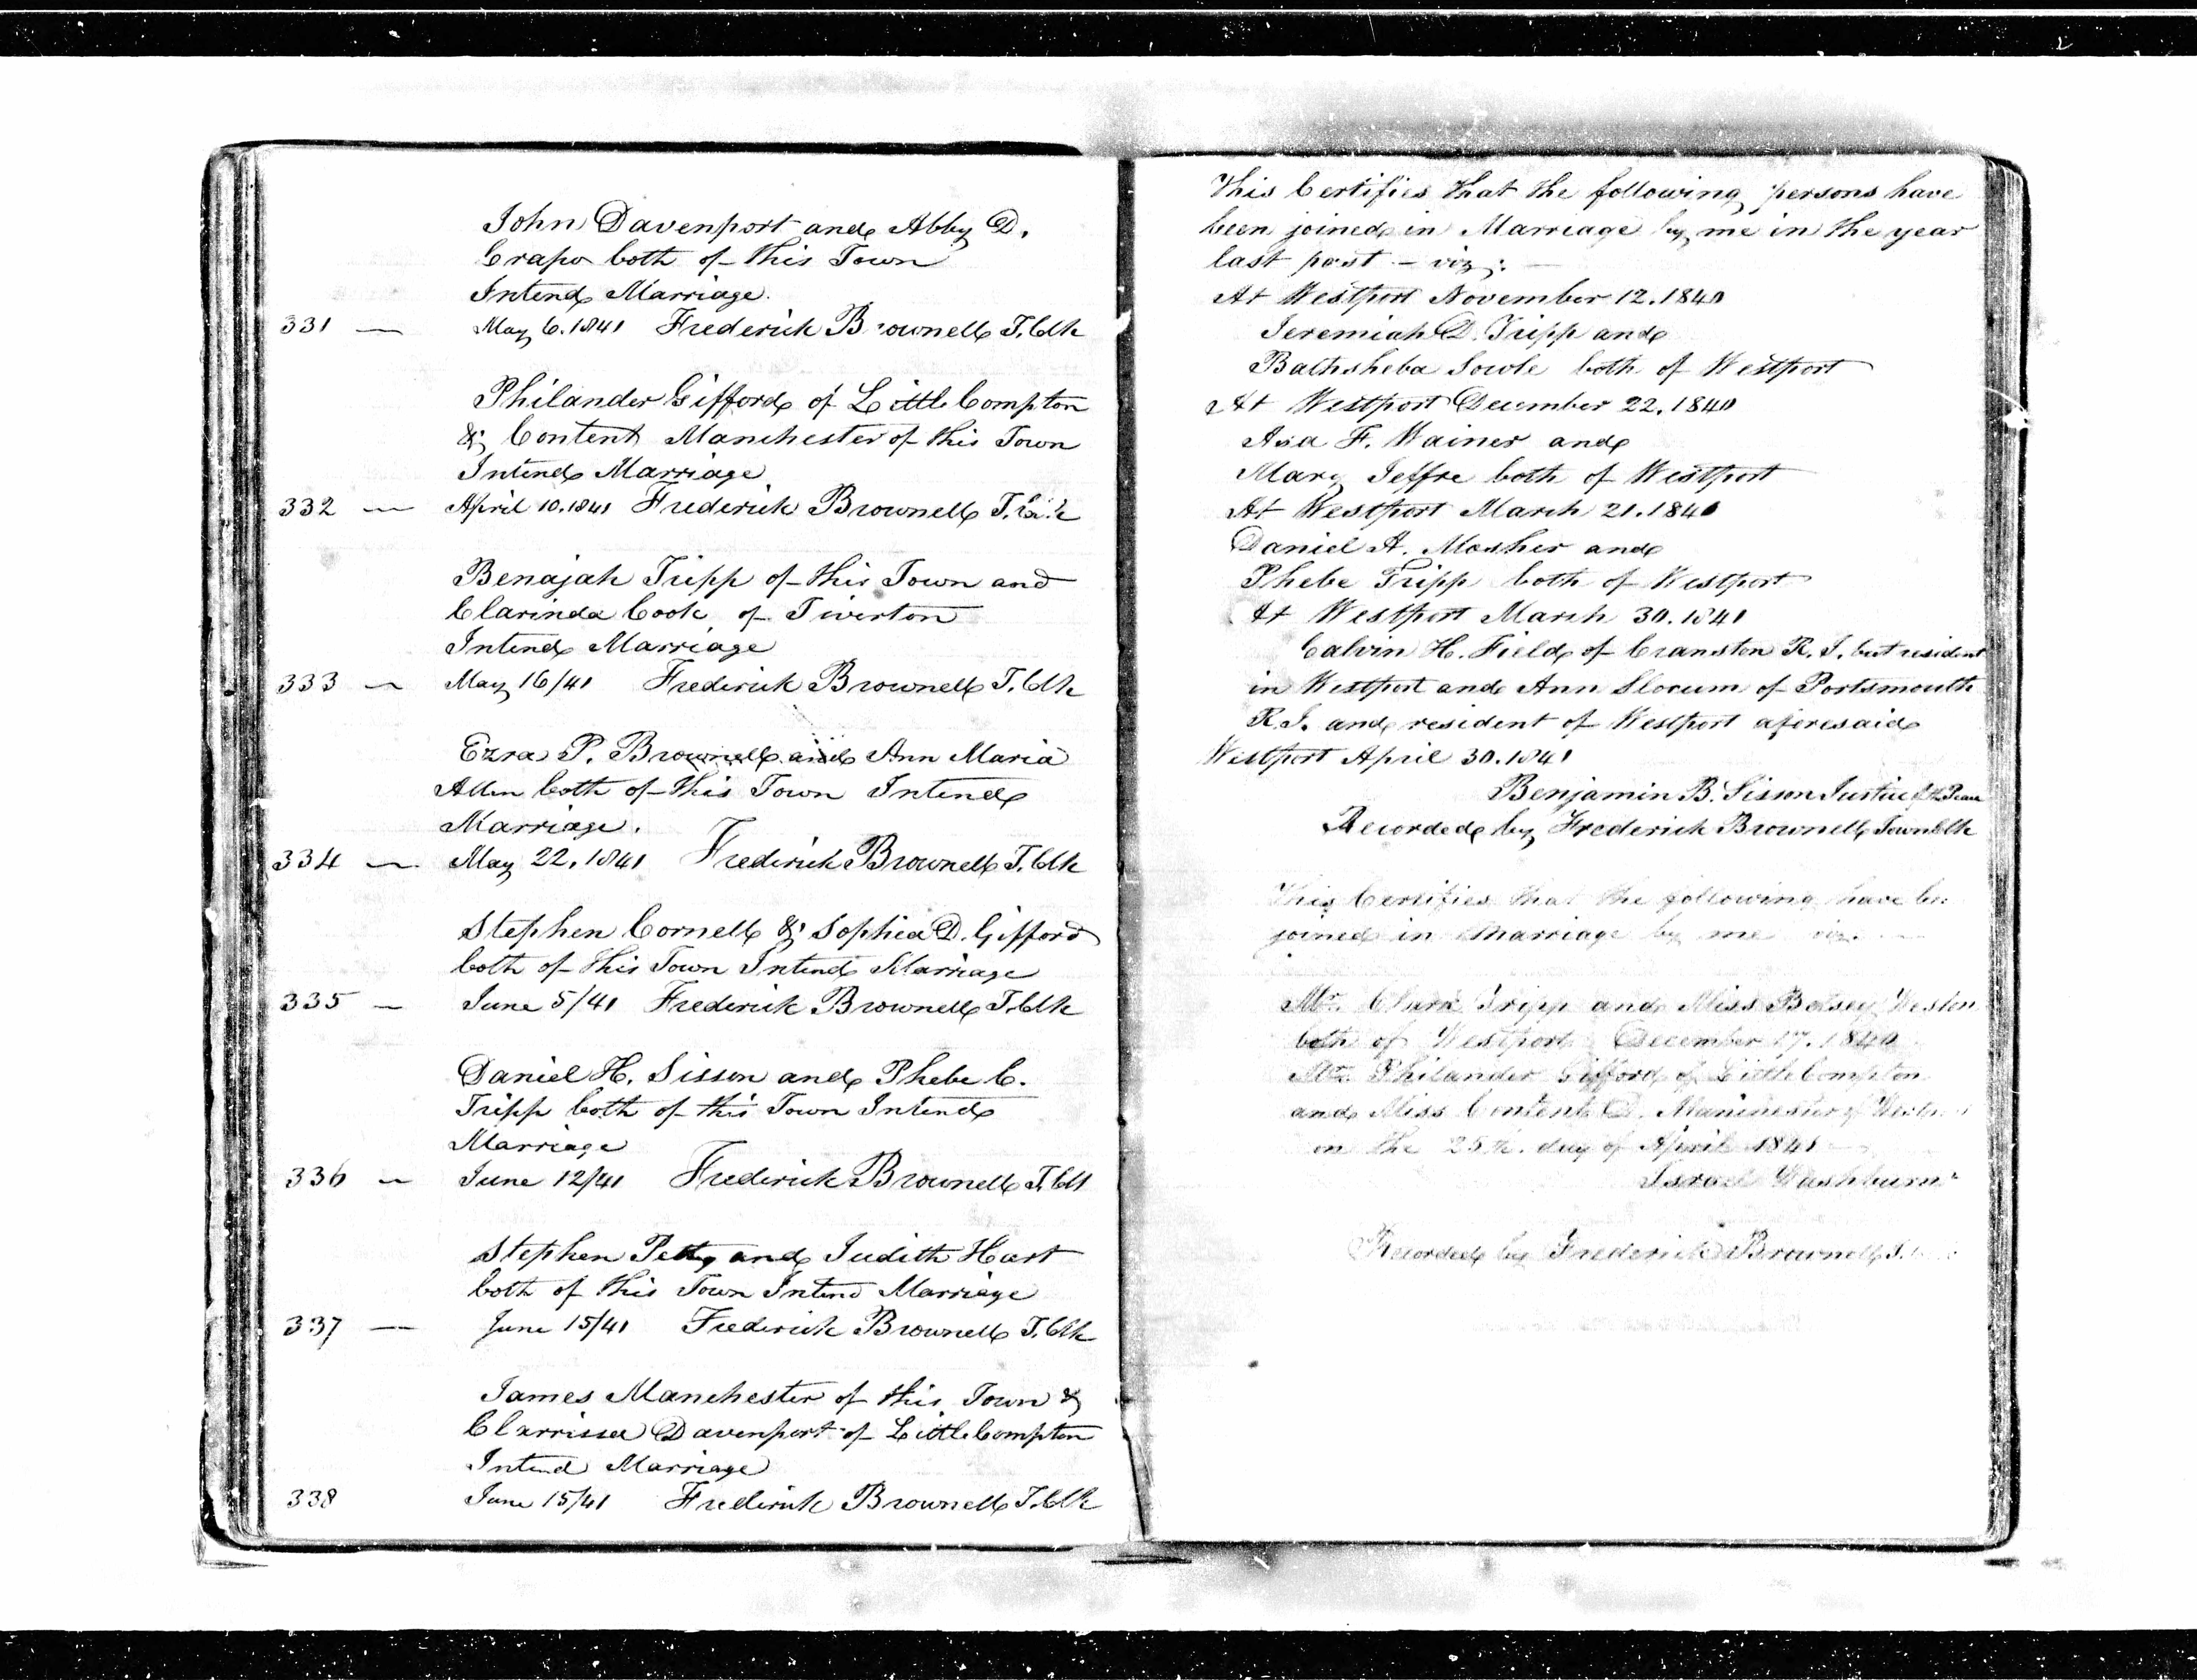 John Davenport and Abby D.
Crapo both of this Town
Intend Marriage.
331 — May 6. 1841 Frederick Brownell T. Clk
Philander Gifford of Little Compton
& Content Manchester of this Town
Intend Marriage
332 — April 10. 1841 Frederick Brownell T. Clk
Benajah Tripp of this Town and
Clarinda Cook of Tiverton
Intend Marriage
333 — May 16/41 Frederick Brownell T. Clk
Ezra P. Brownell and Ann Maria
Allen both of this Town Intend
Marriage.
334 — May 22. 1841 Frederick Brownell T. Clk
Stephen Cornell & Sophia D. Gifford
both of this Town Intend Marriage
335 — June 5/41 Frederick Brownell T. Clk
Daniel H. Sisson and Phebe C.
Tripp both of this Town Intend
Marriage
336 — June 12/41 Frederick Brownell T. Clk
Stephen Petty and Judith Hart
both of this Town Intend Marriage
337 — June 15/41 Frederick Brownell T. Clk
James Manchester of this Town &
Clarrissa Davenport of Little Compton
Intend Marriage
338 June 15/41 Frederick Brownell T. Clk
This Certifies that the following persons have
been joined in Marriage by me in the year
last past — viz;. —
At Westport November 12. 1840
Jeremiah D. Tripp and
Bathsheba Sowle both of Westport
At Westport December 22. 1840
Asa F. Wainer and
Mary Jeffre both of Westport
At Westport March 21. 1840
Daniel A. Mosher and
Phebe Tripp both of Westport
At Westport March 30. 1841
Calvin H. Field of Cranston R. I. but resident
in Westport and Ann Slocum of Portsmouth
R. I. and resident of Westport aforesaid
Westport April 30. 1841
Benjamin B. Sisson Justice of the Peace
Recorded by Frederick Brownell Town Clk
This Certifies that the following have
joined in Marriage by me viz. —
Mr. Clark Tripp and Miss Betsey Weston
both of Westport December 17. 1840
Mr. Philander Gifford of Little Compton
and Miss Content D. Manchester of
on the 25th. day of April 1841 —
Israel Washburn
Recorded by Frederick Brownell T.